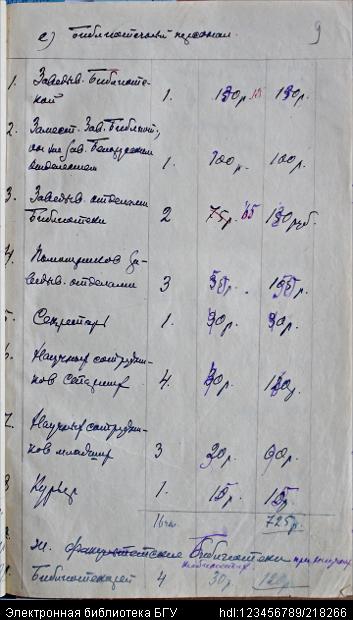 е) Библиотечный персонал. 9
1. Заведыв. Библиоте-
кой 1. 130р. 130р.
2. Замест. Зав. Библиот.,
он же Зав. Белорусским
отделением 1. 100р. 100р.
3. Заведыв. отделами
Библиотеки 2 75р. 65 130руб.
4. Помощников За-
ведыв. отделами 3 55р. 165р.
5. Секретарь 1.
6. Научных сотрудни-
ков старших 4. 30р. 120р.
7. Научных сотрудни-
ков младших 3 20р. 60р.
8. Курьер 1. 15р. 15р.
16 чел. 725р.
ж. факультетские Библиотеки
Библиотекарей 4 30р. 120р.
Электронная библиотека БГУ hdl:123456789/218266